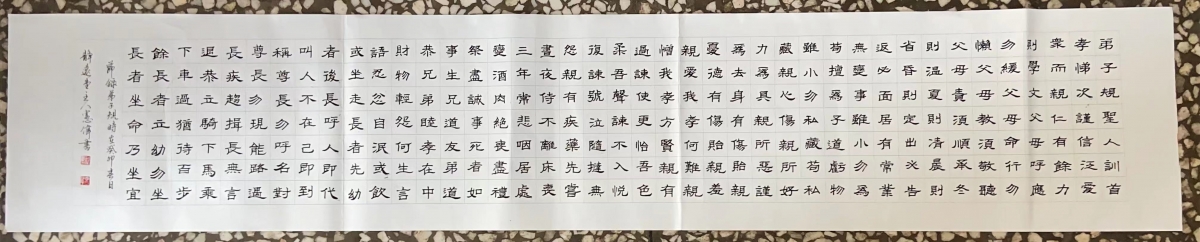 弟子規聖人訓首
孝悌次謹信汎愛
衆而親仁有餘力
則學文父母呼應
勿緩父母命行勿
懶父母教須敬聽
父母責須順承冬
則温夏則凊晨則
省昏則定出必告
返必面居有常業
無變事雖小勿爲
苟擅爲子道虧物
雖小勿私藏苟私
藏親心傷親所好
力爲具親所惡謹
爲去身有傷貽親
憂德有傷貽親羞
親愛我孝何難親
憎我孝方賢親有
過諫使更怡吾色
柔吾聲諫不入悅
復諫號泣隨撻無
怨親有疾藥先嘗
晝夜侍不離床喪
三年常悲咽居處
變酒肉絕喪盡禮
祭盡誠事死者如
事生兄道友弟道
恭兄弟睦孝在中
財物輕怨何生言
語忍忿自泯或飲
或坐走長者先幼
者後長呼人即代
叫人不在己即到
稱尊長勿呼名對
尊長勿現能路遇
長疾趨揖長無言
退恭立騎下馬乘
下車過猶待百步
餘長者立幼勿坐
長者坐命乃坐宜
節錄弟子規時在癸卯春日
書